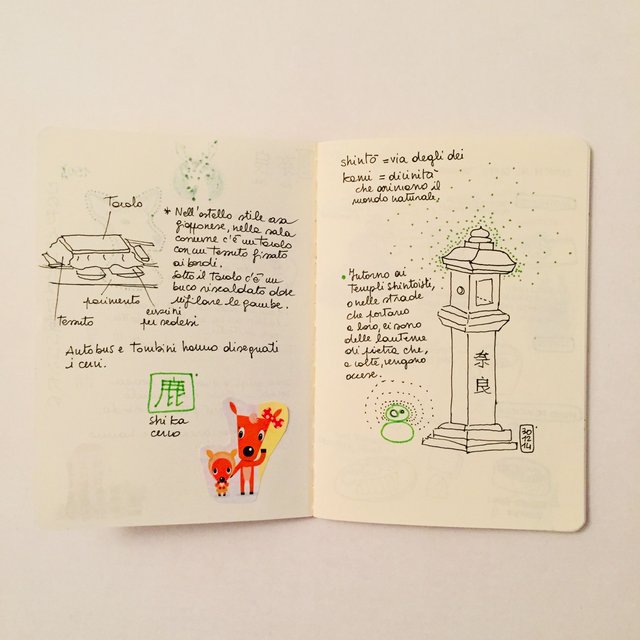 Tavolo
* Nell'ostello stile casa
giapponese, nella sala
comune c'è un tavolo
con un tessuto fissato
ai bordi.
Sotto il Tavolo c'è un
buco riscaldato dove
infilare le gambe.
pavimento
cuscini
per sedersi
tessuto
Autobus e Tombini hanno disegnati
i cervi.
鹿
shika
cervo
shintō = via degli dei
kami = divinità
che animano il
mondo naturale,
Intorno ai
Templi shintoisti,
o nelle strade
che portano
a loro, ci sono
delle lanterne
di pietra che,
a volte, vengono
accese.
奈
良
30
12
14